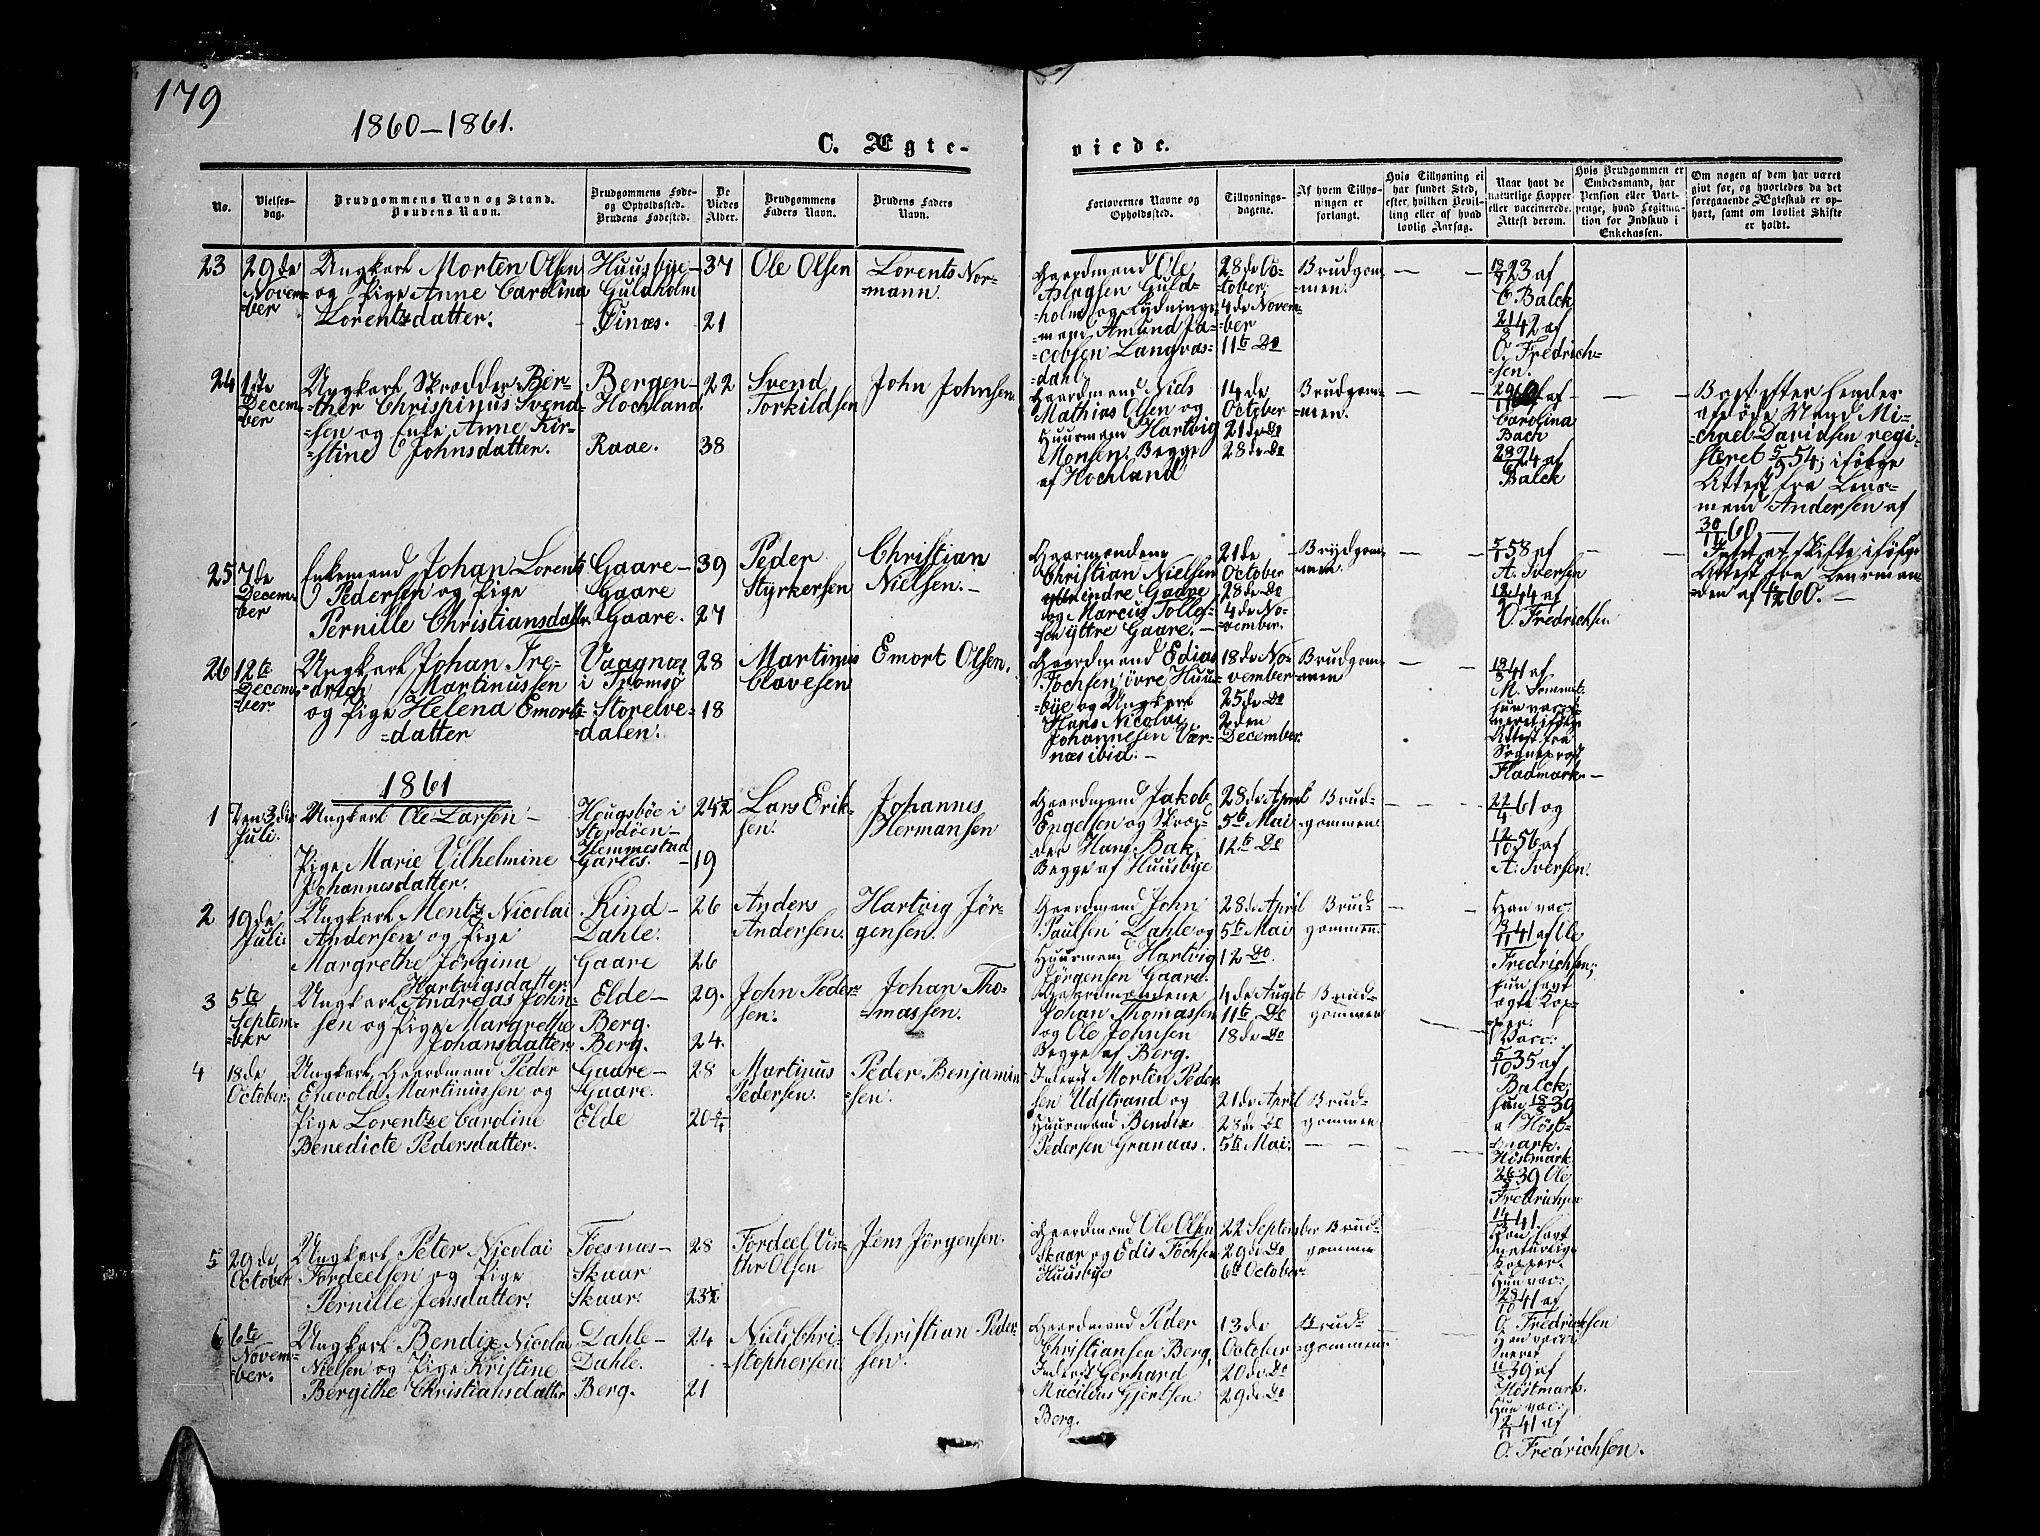 179
1860-1861.
C. Ægte-
viede.
No.
Vielses-
dag.
Brudgommens Navn og Stand.
Brudens Navn.
Brudgommens Føde-
og Opholdssted.
Brudens Fødested.
De
Viedes
Alder.
Brudgommens
Faders Navn.
Brudens Faders
Navn.
Forlovernes Navne og
Opholdssted.
Tillysnings-
dagene.
Af hvem Tillys-
ningen er
forlangt.
Hvis Tillysning ei
har fundet Sted,
efter hvilken Bevil-
ling eller af hvad
lovlig Aarsag.
Naar havt de
naturlige Kopper
eller vaccinerede.
Attest derom.
Hvis Brudgommen er
Embedsmand, har
Pension eller Vart-
penge, hvad Legitima-
tion for Indskud i
Enkekassen.
Om nogen af dem har været
givt før, og hvorledes da det
foregaaende Ægteskab er op-
hørt, samt om lovligt Skifte
er holdt.
23
29de
Novem-
=ber
Ungkarl Morten Olsen
og Pige Anne Carolina
Lorentzdatter.
Huusbye-
Guldholm
Finæs.
37
21
Ole Olsen
Lorents Nor-
=mann.
Gaardmand Ole
Aslagsen Guld-
=holm og Rydnings-
=mand Amund Ja-
=cobsen Langvas-
=dahl.
28de Oc-
=tober.
4de Novem-
=ber
11te Do
Brudgom-
=men.
18/7 23 af
C. Balck
21/8 42 af
O. Fredrich-
=sen.
24
1ste
Decem-
=ber
Ungkarl Skrædder Ber-
=ther Chrispinus Svend-
=sen og Enke Anne Kir-
=stine Johnsdatter.
Bergen-
Hochland.
Raae.
22
38
Svend
Torkildsen
John Johnsen.
Gaardmand Nids
Mathias Olsen og
Huusmand Hartvig
Monsen. Begge
af Hochland
14de
October
21de Do
28de Do
Brudgom-
=men.
Carolina
Bach
28/6 24 af
Balck
Boet efter hendes
afdøde Mand Mi-
=chael Davidsen regi-
steret 5/9 54, ifølge
Attest fra Lens-
mand Andersen af
30/11 60.
25
7de
Decem-
ber
Enkemand Johan Lorents
Pedersen og Pige
Pernille Christiansdatter.
Gaare-
Gaare
Gaare.
39
27
Peder
Styrkersen
Christian
Nielsen.-
Gaardmændene
Christian Nielsen
indre Gaare
og Marcus Tollef-
sen yttre Gaare.-
21de
October
28de Do
4de No-
=vember.
Brudgom-
men.
5/1 58 af
A. Iversen
12/11 44 af
O. Fredrichsen
Intet at skifte ifølge
Attest fra Lensman-
=den af 1/12 60.-
26
12te
Decem-
=ber.
Ungkarl Johan Fre-
=drich Martinussen
og Pige Helena Emorts-
=datter
Vaagnæs
i Tromsø
Storelve-
=dalen.
28
18
Martinus
Clavesen
Emort Olsen.
Gaardmand Edias
Fochsen, øvre Huus-
=bye og Ungkarl
Hans Nicolai
Johannesen Vær-
næs ibid.-
18de No-
vember
25de Do
2den
December.
Brudgom-
=men
18/8 41 af
Attest fra
Sogneprest
Fladmark-
1861
1
Den 3die
Juli.
Ungkarl Ole Larsen-
Pige Marie Vilhelmine
Johannesdatter.
Hougsbøe i
Stordøen-
Hemmestad
19
Lars Erik-
sen.
Johannes
Hermansen
Gaardmand Jakob
Engelsen og Skræd-
der Hans Bak,
Begge af Huusbye
28de April
5te Mai
12te Do
Brud-
gommen.
22/4 61 og
12/10 56 af
A. Iversen.
2
19de
Juli.
Ungkarl Mentz Nicolai
Andersen og Pige
Margrethe Jørgina
Hartvigsdatter.
Lind-
Dahle.
Gaare
26
26
Anders
Andersen.
Hartvig Jør-
gensen.
Gaardmand John
Paulsen Dahle og
Huusmand Hartvig
Jørgensen Gaare.
28de April
5te Mai
12 Do.
Brud-
gommen.
Han vac.
3/11 41 af Ole
Fredrichsen;
hun havt
ægte Kop-
=per.
3
5te
Septem-
=ber
Ungkarl Andreas John-
sen og Pige Margrethe
Johansdatter.
Elde-
Berg.
Berg.
29.
24.
John Peder-
sen.
Johan Tho-
=massen.
Gaardmændene
Johan Thomassen
og Ole Johnsen
Begge af Berg.
4de Augst
11te Do
18de Do
Brud-
gommen
Vacc.
5/10 35 af
Balck;
hun 18/8 39
af Høst-
mark.
4
18de
October.
Ungkarl, Gaardmand Peder
Enevold Martinussen og
Pige Lorentze Caroline
Benedicte Pedersdatter.
Gaare-
Gaare.
Elde
28
Martinus
Pedersen.
Peder Benjamin-
=sen.
Inderst Morten Peder-
sen Udstrand og
Huusmand Bendix
Pedersen Granaas.
21de April
28de Do
5te Mai.
Brud-
gommen
Høstmark
26/5 39 Ole
Fredrichsen
14/11 41.
5
29de
October
Ungkarl Peter Nicolai
Tordeelsen og Pige
Pernille Jensdatter.
Foesnæs-
Skaar
Skaar.
28
23½
Tordeel Vin-
thr Olsen
Jens Jørgensen.
Gaardmand Ole Olsen
Skaar og Edis Fochsen
Huusbye
22 September
29de Do
6te October.
Brud-
gommen
Han havt
naturlige
Kopper.
Hun vac:
28/10 41 af
O. Fredrichsen
6
6te
Novem-
=ber.
Ungkarl Bendix Nicolai
Nielsen og Pige Kristine
Bergithe Christiansdatter
Dahle-
Dahle.
Berg.
24
21
Niels Chri-
=stophersen.
Christian Peder-
sen.
Gaardmand Peder
Christiansen Berg,
Inderst Gerhard
Macilius Gjertsen
Berg.
13de
October
20de Do
29de Do
Brud-
=gommen.
Han vacci
neret
11/11 39 af
Høstmark.
Hun vac:
2/11 41 af
O. Fredrichsen.